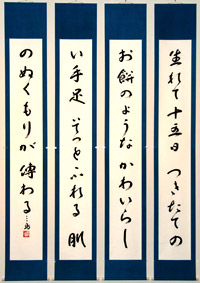 生れて十五日 つきたての
お餅のようなかわいらし
い手足 そっとふれる 肌
のぬくもりが 傳わる…